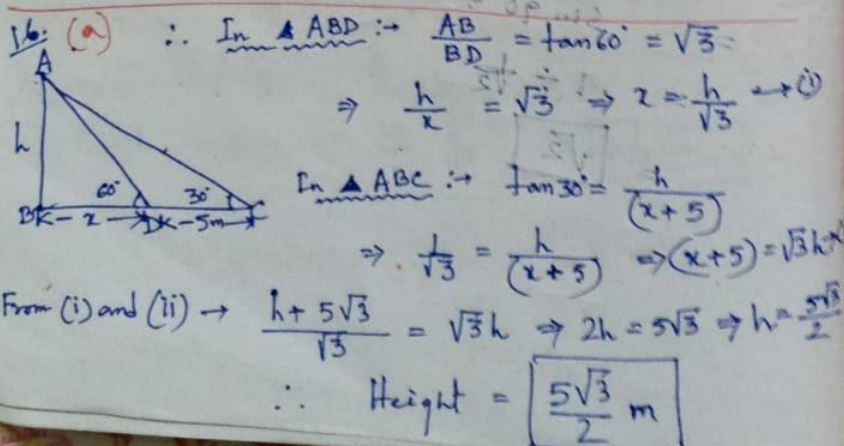 16. (a) ∴ In ▲ ABD :→ AB/BD = tan60° = √3
⇒ h/x = √3 ⇒ x = h/√3 → (i)
A
h
60° 30°
B K- x →D K-5m→ C
In ▲ ABC :→ tan30° = h/(x+5)
⇒ 1/√3 = h/(x+5) ⇒ (x+5) = √3h
From (i) and (ii) → h+5√3/√3 = √3h ⇒ 2h = 5√3 ⇒ h = 5√3/2
∴ Height = 5√3/2 m